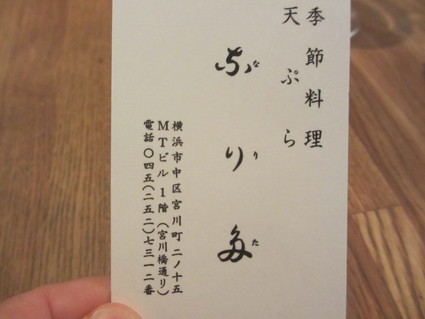 季節料理
天ぷら
なりた
横浜市中区宮川町二ノ十五
MTビル1階(宮川橋通り)
電話〇四五(二五二)七三一二番